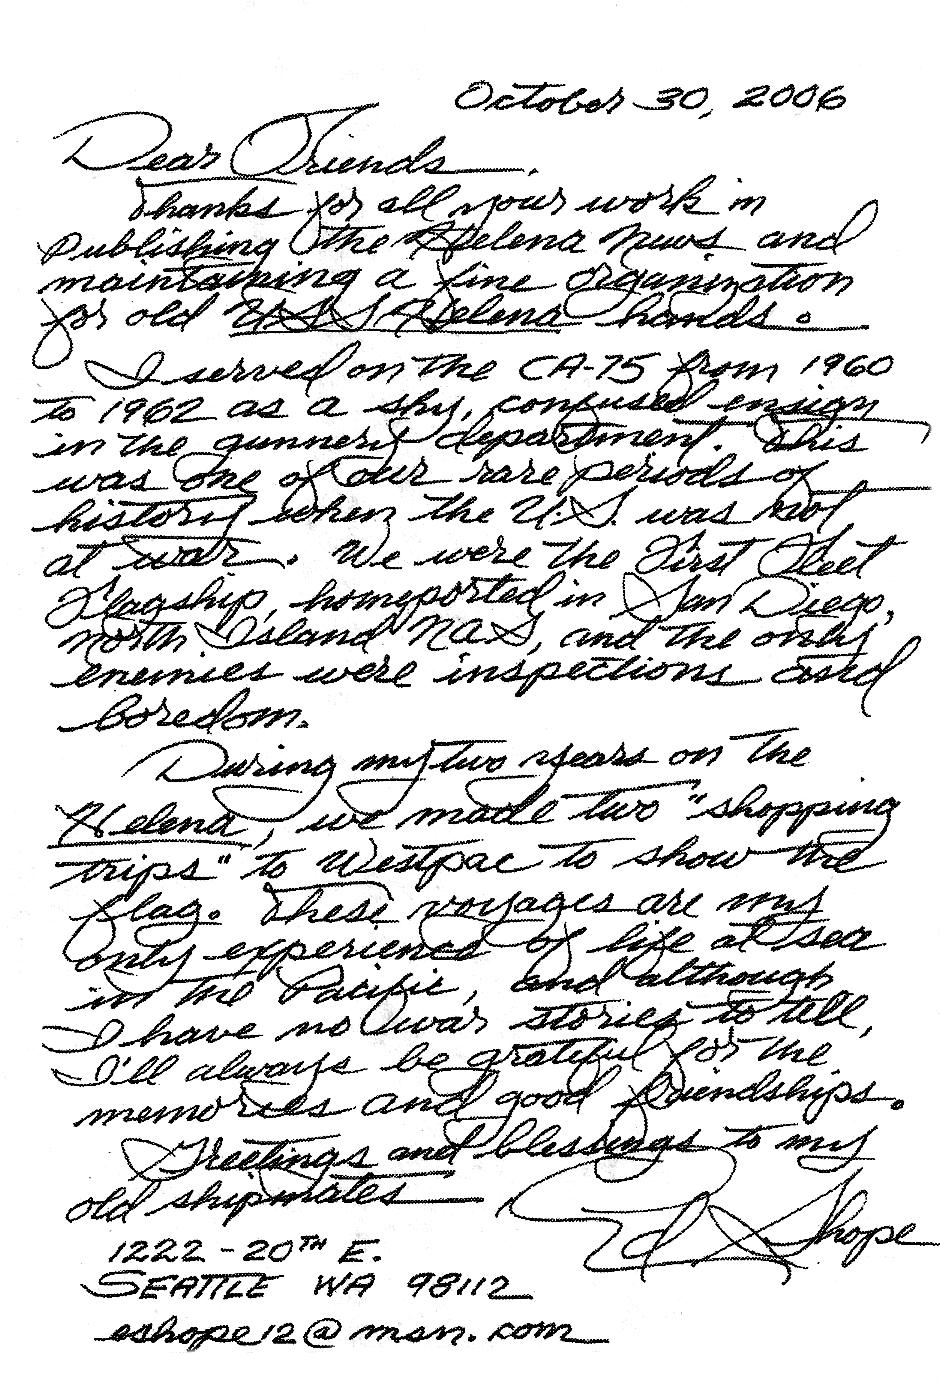 October 30, 2006
Dear Friends.
Thanks for all your work in
Publishing the Helena News and
maintaining a fine organization
for old USS Helena hands.
I served on the CA-75 from 1960
to 1962 as a shy, confused ensign
in the gunnery department. This
was one of our rare periods of
history when the U.S. was not
at war. We were the First Fleet
Flagship, homeported in San Diego,
North Island NAS, and the only
enemies were inspections and
boredom.
During my two years on the
Helena, we made two "shopping
trips" to Westpac to show the
flag. These voyages are my
only experience of life at sea
in the Pacific, and although
I have no war stories to tell,
I'll always be grateful for the
memories and good friendships.
Greetings and blessings to my
old shipmates
Ed Shope
1222-20TH E.
SEATTLE WA 98112
eshope12@msn.com